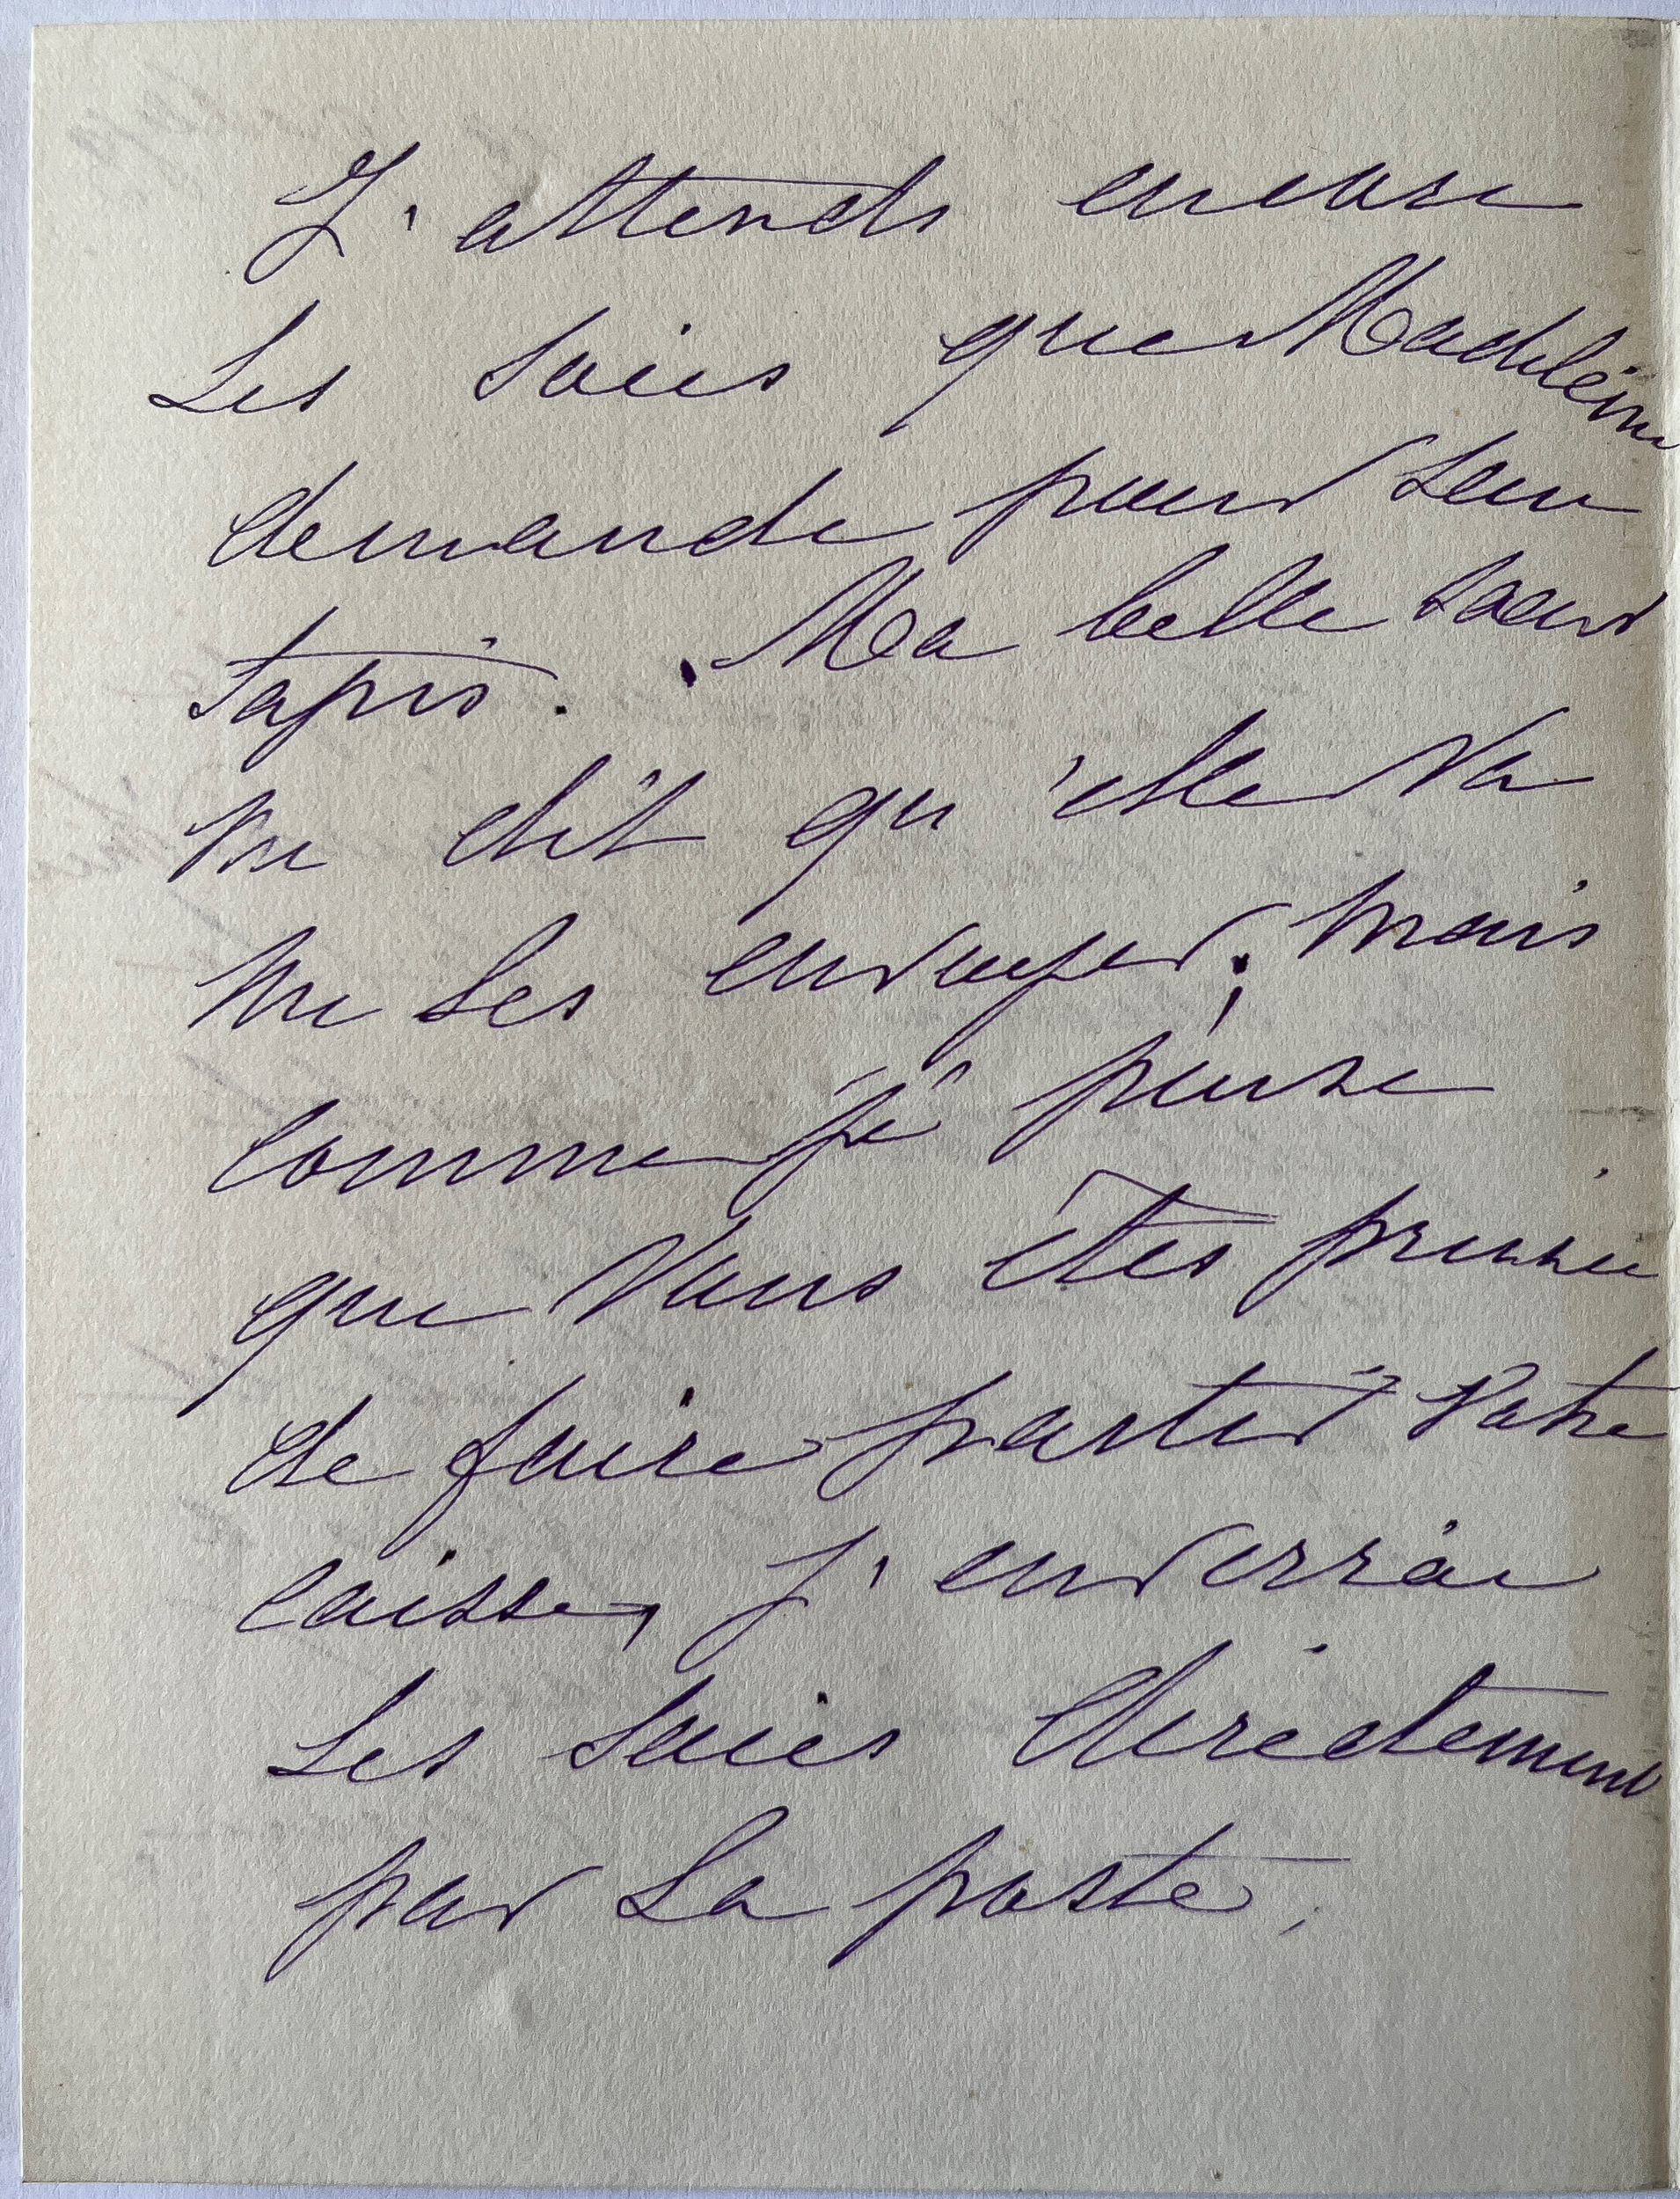 J'attends encore
les soies que Madeleine
demande pour son
tapis. Ma belle soeur
me dit qu'elle va
me les envoyer; mais
comme je pense
que vous êtes pressée
de faire partir votre
caisse, j'enverrai
les soies directement
par la poste.